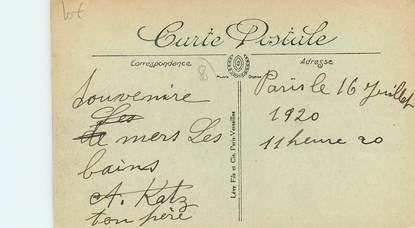 Carte Postale
Correspondance
Adresse
Souvenire
Les
de mers Les
bains
A. Katz
ton père
Paris le 16 Juillet
1920
11 heure 20
Lévy Fils et Cie, Paris-Versailles